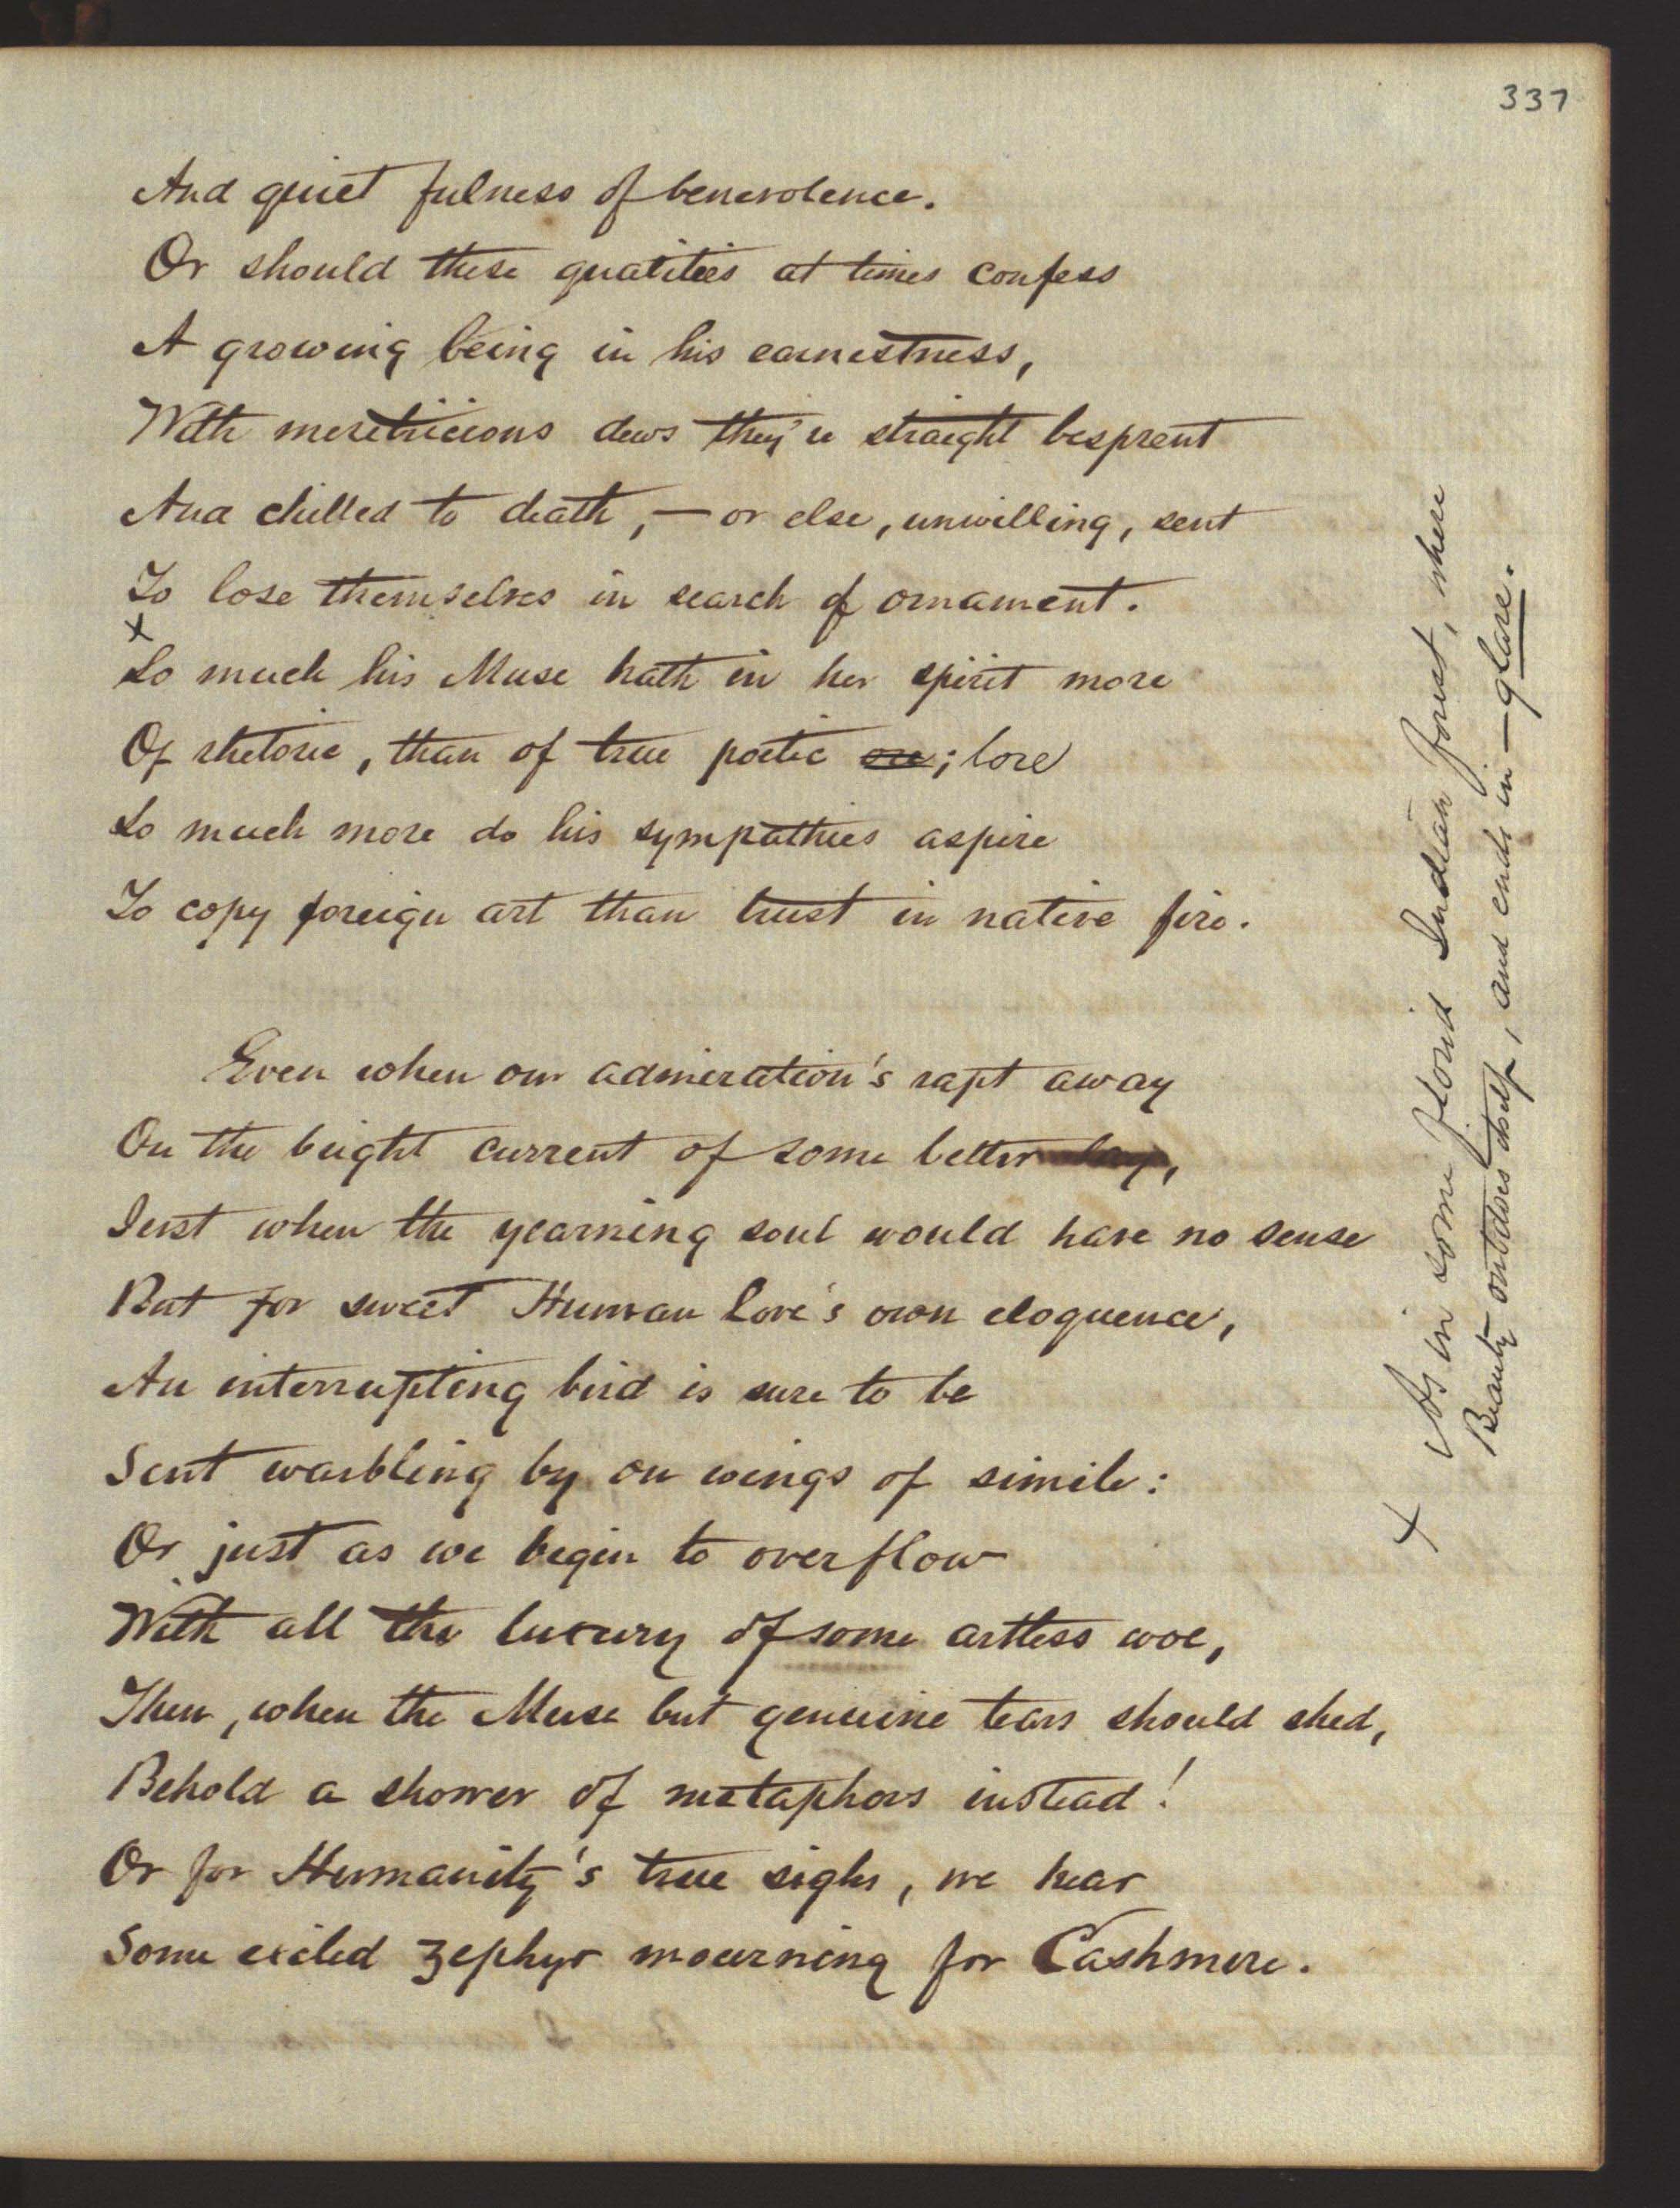 337
And quiet fulness of benevolence.
Or should these qualities at times confess
A growing being in his earnestness,
With meretricious dews they're straight besprent
And chilled to death, — or else, unwilling, sent
To lose themselves in search of ornament.
x
So much his Muse hath in her spirit more
Of rhetoric, than of true poetic ore; lore
So much more do his sympathies aspire
To copy foreign art than trust in native fire.
Even when our admiration's rapt away
On the bright current of some better lay,
Just when the yearning soul would have no sense
But for sweet Human Love's own eloquence,
An interrupting bird is sure to be
Sent warbling by on wings of simile:
Or just as we begin to overflow
With all the luxury of some artless woe,
Then, when the Muse but genuine tears should shed,
Behold a shower of metaphors instead!
Or for Humanity's true sighs, we hear
Some exiled zephyr mourning for Cashmere.
x As in some florid Indian forest, where
Beauty outdoes itself, and ends in — glare.